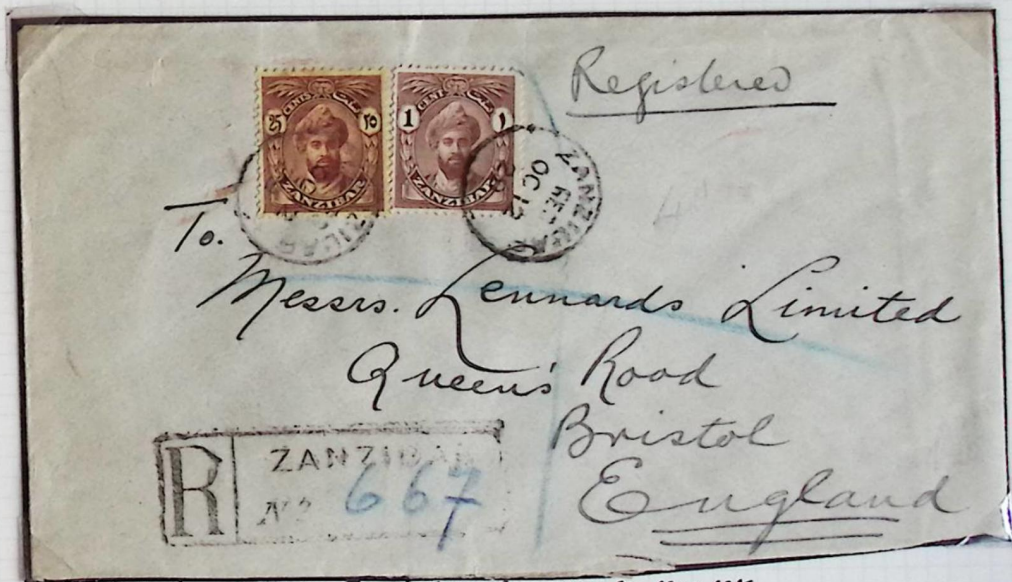 Registered
25 CENTS ٢٥
ZANZIBAR
1 CENT ١
ZANZIBAR
ZANZIBAR
OC 12
29
To.
Messrs. Lennards Limited
Queen's Road
Bristol
England
R ZANZIBAR
No 667